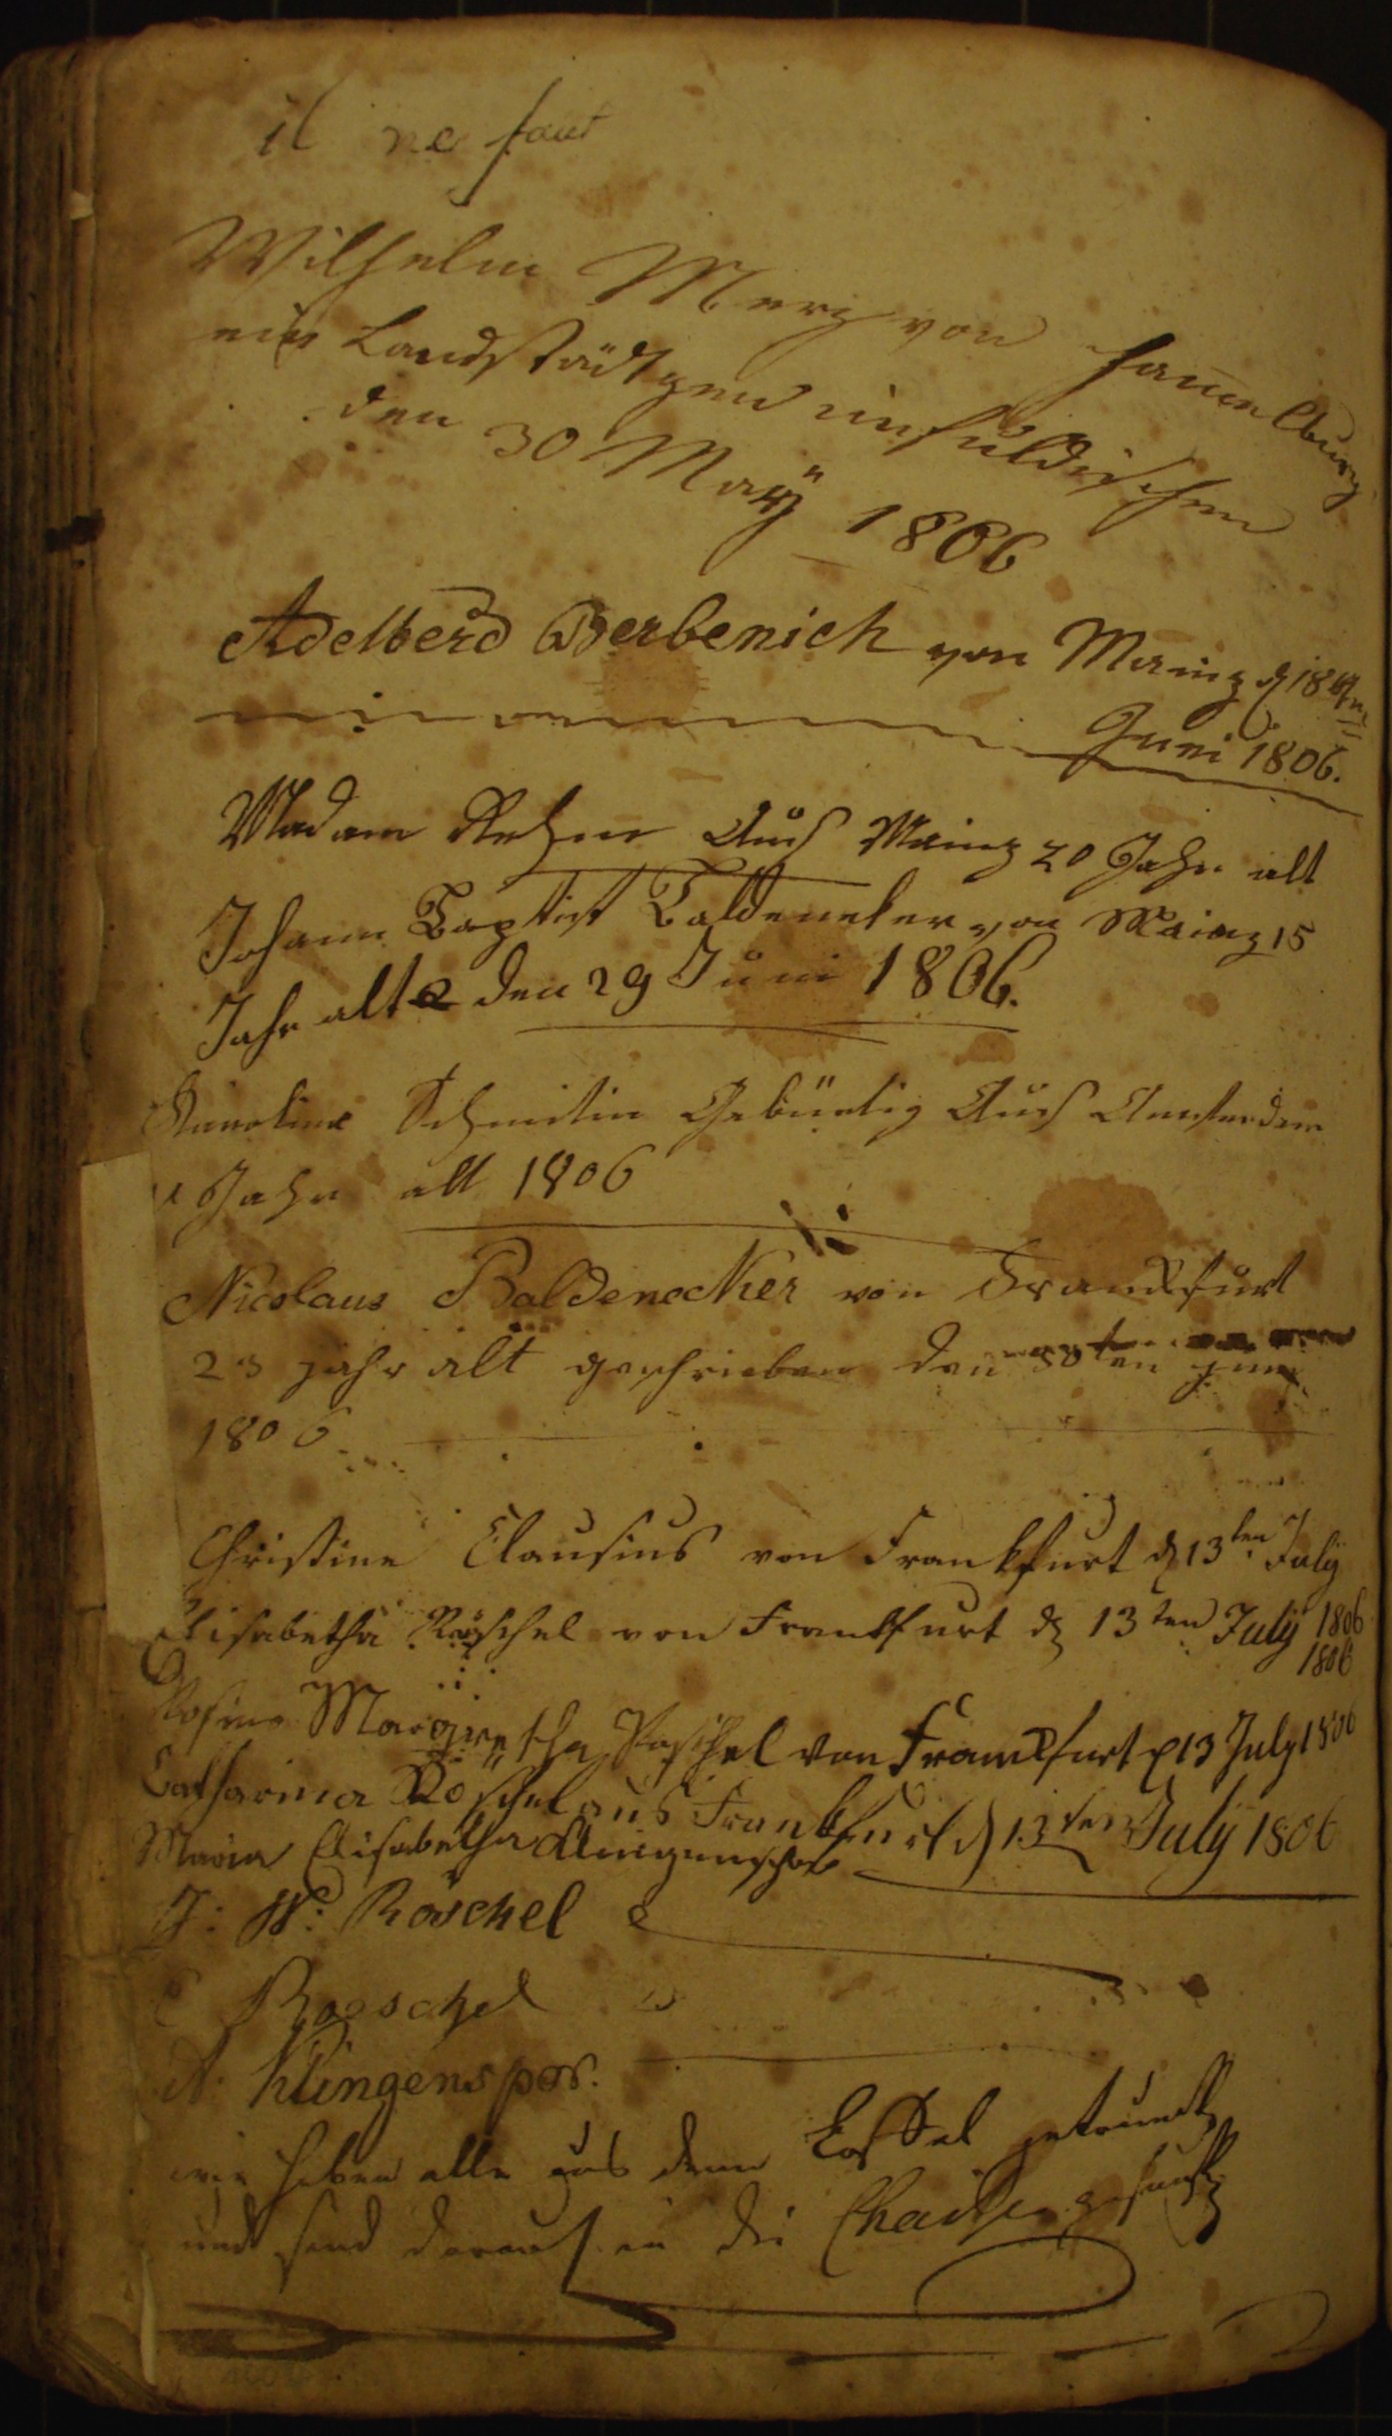 il ne faut
Wilhelm Merz von Hammelburg
ein Landstädtgen im fuldischen
den 30 May 1806
Adelberd Berbenich von Mainz d 18ten
Juni 1806.
Madam Aus Mainz 20 Jahr alt
Johann Baptist Baldeneker von Mainz 15
Jahr alt den 29 Juni 1806.
Karoline Schmitin Gebürtig Aus Amsterdam
Jahr alt 1806
Nicolaus Baldenecker von Frankfurt
23 jahr alt geschrieben den 30ten juni
1806
Christine Clausius von Frankfurt d 13ten July
1806
Elisabetha Röschel von Frankfurt d 13ten July
1806
Rosina Margretha Röschel von Frankfurt d 13 July 1806
Catharina Röschel aus Frankfurt d 13ten July 1806
Maria Elisabetha Klingenspor
J: W: Röschel
C Roeschel
A. Klingenspor.
wir haben alle aus dem getrunck
und sind darauf in die Chaise